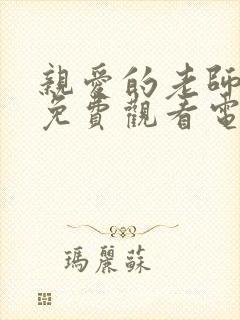 親愛的老師
免費觀看電
瑪麗蘇